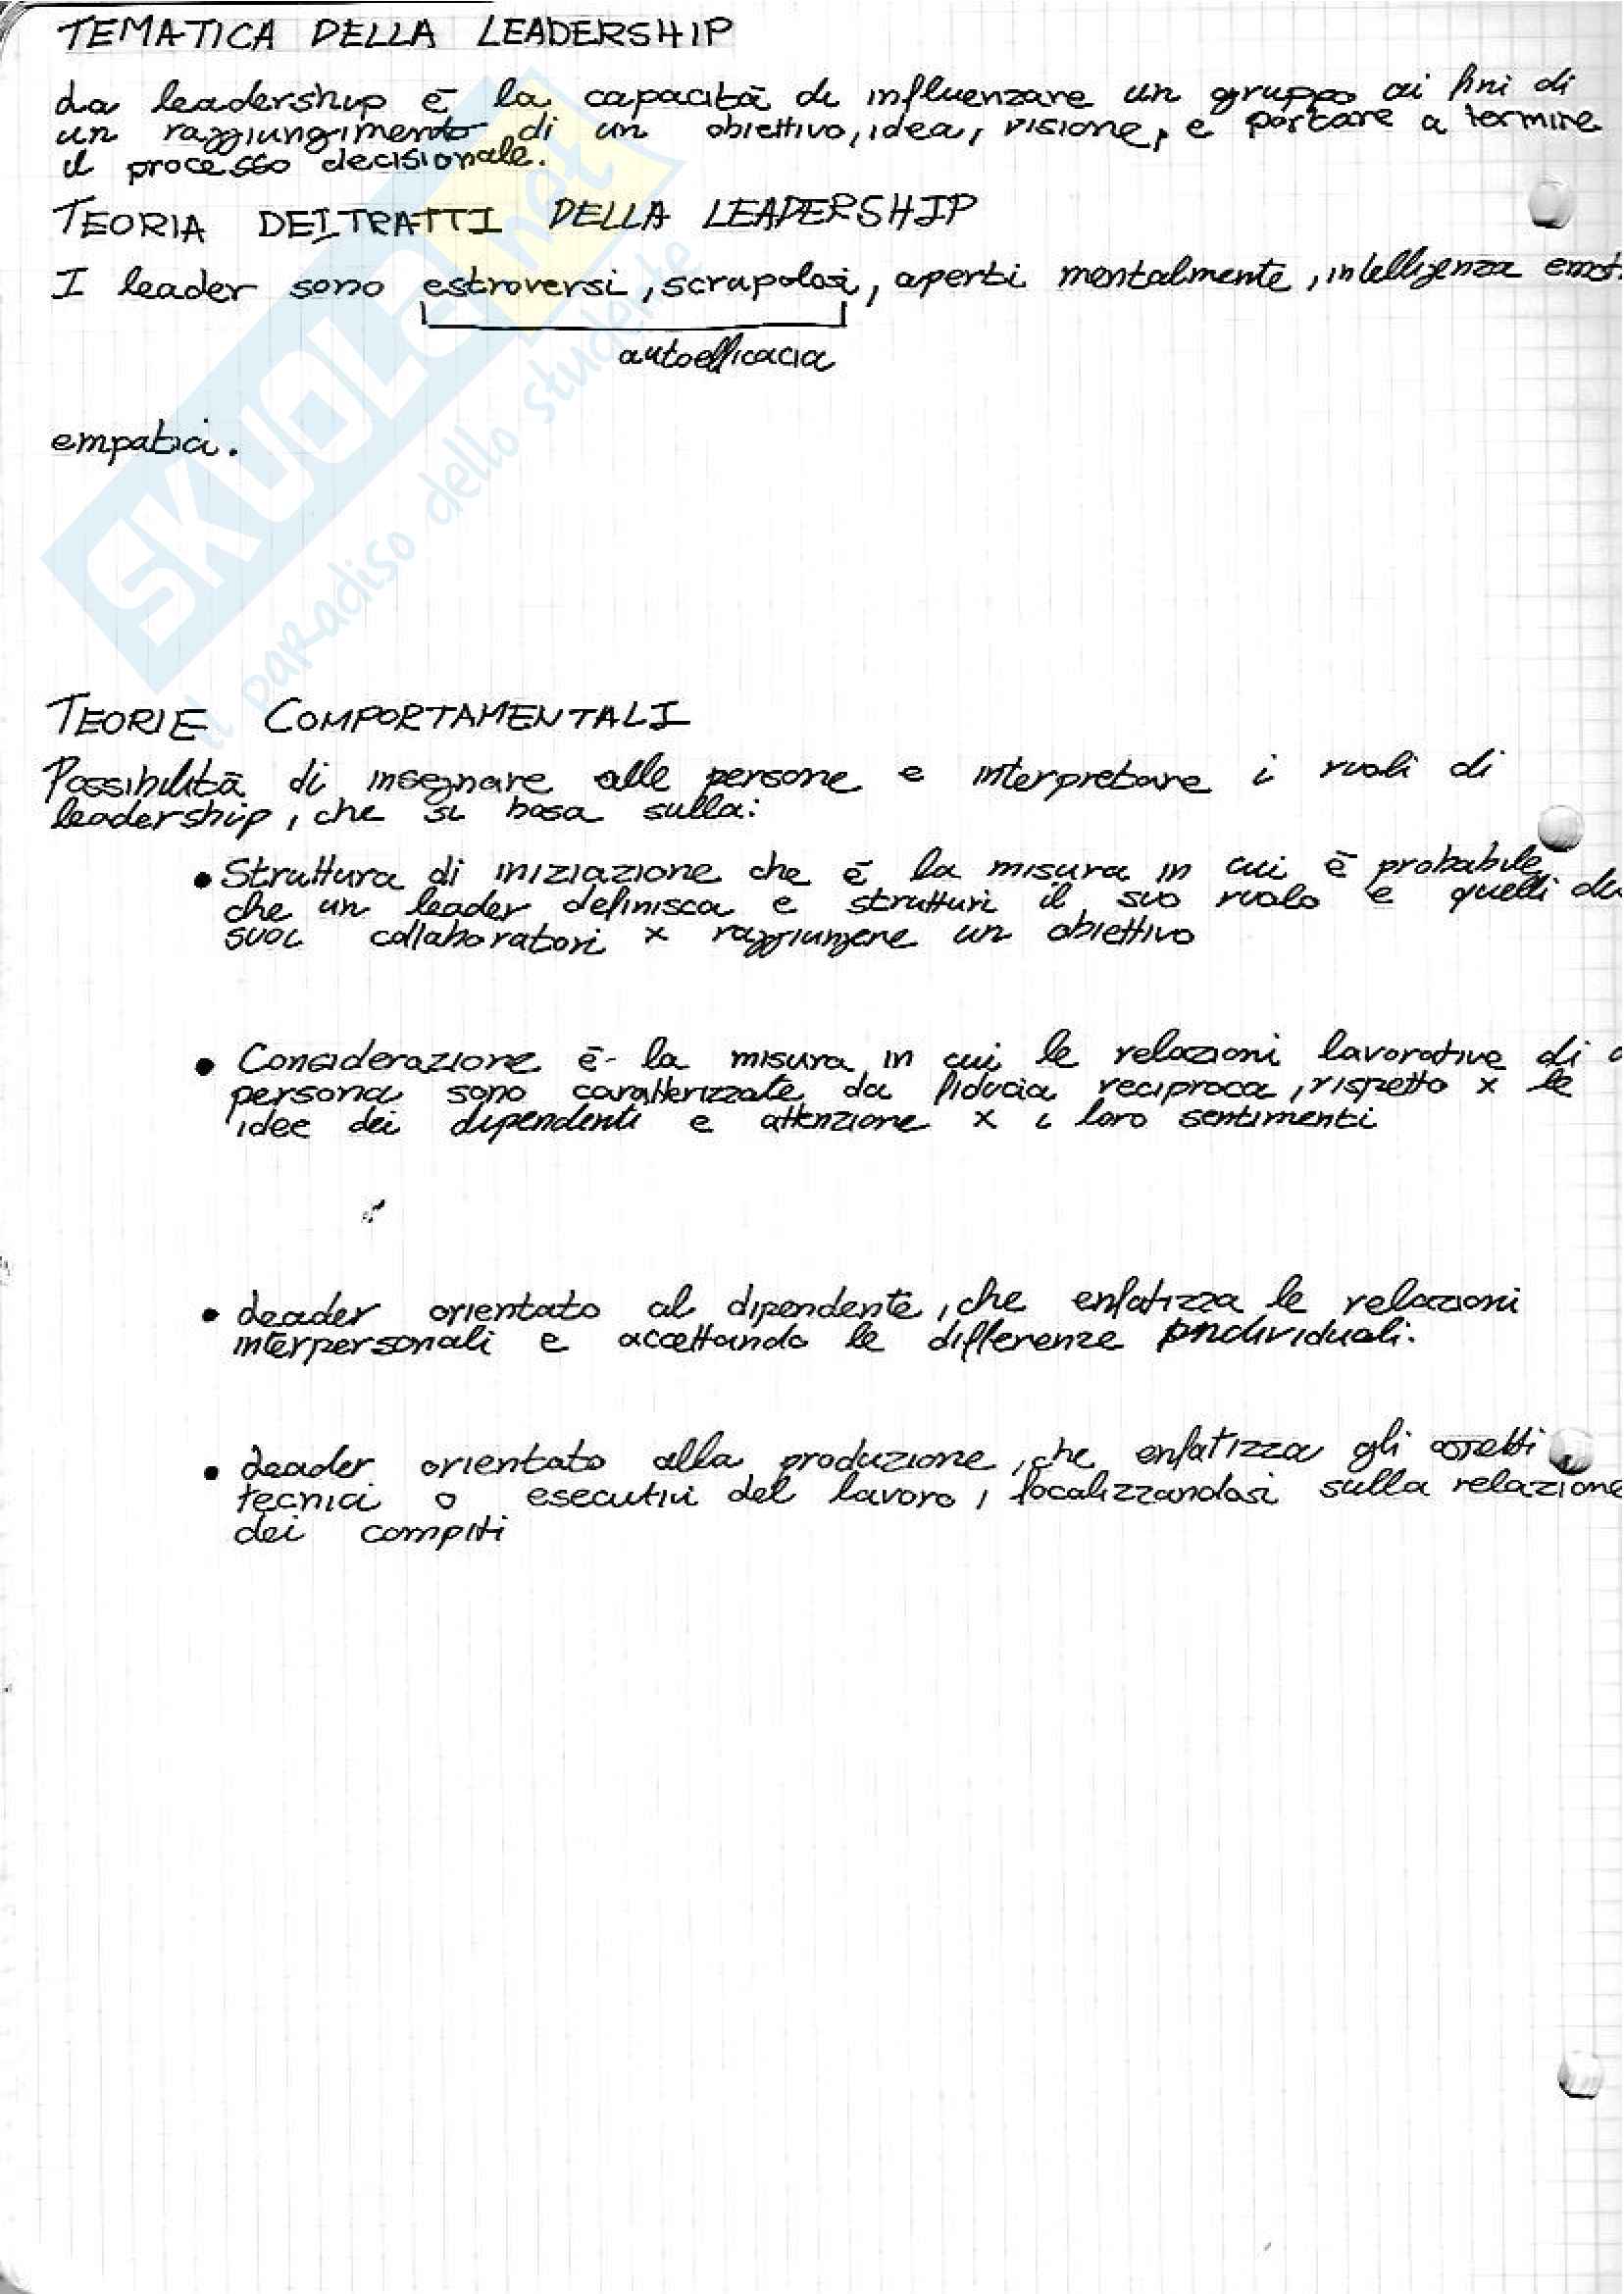 TEMATICA DELLA LEADERSHIP
La leadership è la capacità di influenzare un gruppo ai fini di
un raggiungimento di un obiettivo, idea, visione, e portare a termine
il processo decisionale.
TEORIA DEI TRATTI DELLA LEADERSHIP
I leader sono estroversi, scrupolosi, aperti mentalmente, intelligenza emot
autoefficacia
empatici.
SKUOLA.net
il paradiso dello studente
TEORIE COMPORTAMENTALI
Possibilità di insegnare alle persone e interpretare i ruoli di
leadership, che si basa sulla:
• Struttura di iniziazione che è la misura in cui è probabile
che un leader definisca e strutturi il suo ruolo e quelli dei
suoi collaboratori x raggiungere un obiettivo
• Considerazione è la misura in cui le relazioni lavorative di
persona sono caratterizzate da fiducia reciproca, rispetto x le
idee dei dipendenti e attenzione x i loro sentimenti
• Leader orientato al dipendente, che enfatizza le relazioni
interpersonali e accettando le differenze individuali.
• Leader orientato alla produzione, che enfatizza gli aspetti
tecnici o esecutivi del lavoro, focalizzandosi sulla relazione
dei compiti